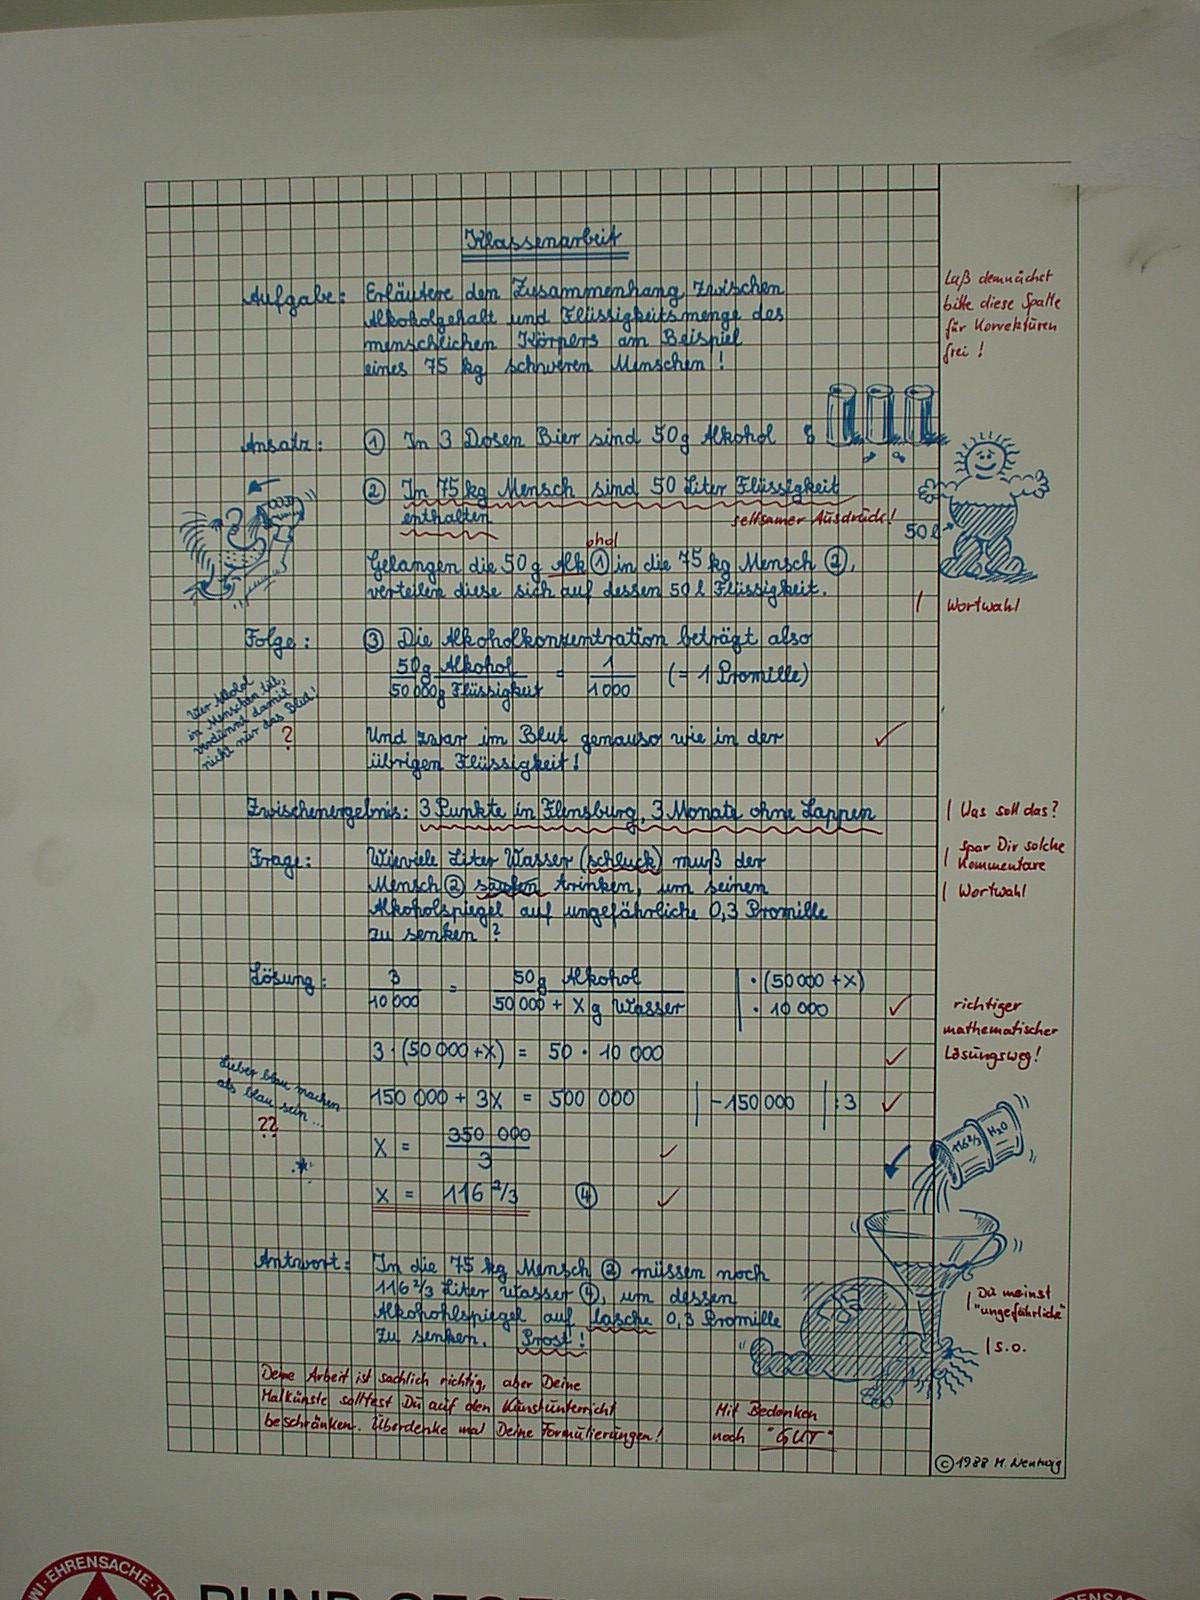 Klassenarbeit
Laß demnächst
bitte diese Spalte
für Korrekturen
frei !
Aufgabe: Erläutere den Zusammenhang zwischen
Alkoholgehalt und Flüssigkeitsmenge des
menschlichen Körpers am Beispiel
eines 75 kg schweren Menschen !
Ansatz: ① In 3 Dosen Bier sind 50g Alkohol
② In 75 kg Mensch sind 50 Liter Flüssigkeit
enthalten
seltsamer Ausdruck!
50 l
ohol
Gelangen die 50 g Alk ① in die 75 kg Mensch ②,
verteilen diese sich auf dessen 50 l Flüssigkeit.
Wortwahl
Folge: ③ Die Alkoholkonzentration beträgt also
50g Alkohol / 50 000g Flüssigkeit = 1 / 1000 (= 1 Promille)
Wer Alkohol
in Menschen füllt,
verdünnt damit
nicht nur das Blut!
?
Und zwar im Blut genauso wie in der
übrigen Flüssigkeit!
Zwischenergebnis: 3 Punkte in Flensburg, 3 Monate ohne Lappen
Was soll das?
Frage: Wieviele Liter Wasser (schluck) muß der
Mensch ② saufen trinken, um seinen
Alkoholspiegel auf ungefährliche 0,3 Promille
zu senken ?
spar Dir solche
Kommentare
Wortwahl
Lösung: 3 / 10 000 = 50g Alkohol / 50 000 + X g Wasser | · (50 000 + X) · 10 000
richtiger
mathematischer
Lösungsweg!
3 · (50 000 + X) = 50 · 10 000
150 000 + 3X = 500 000 | - 150 000 | : 3
Lieber blau machen
als blau sein ...
??
X = 350 000 / 3
X = 116 2/3 ④
116 2/3 H2O
Antwort: In die 75 kg Mensch ② müssen noch
116 2/3 Liter Wasser ④, um dessen
Alkohohlspiegel auf lasche 0,3 Promille
zu senken. Prost !
Du meinst
"ungefährliche"
s.o.
Deine Arbeit ist sachlich richtig, aber Deine
Malkünste solltest Du auf den Kunstunterricht
beschränken. Überdenke mal Deine Formulierungen!
Mit Bedenken
noch "GUT"
© 1988 M. Nentwig
EHRENSACHE